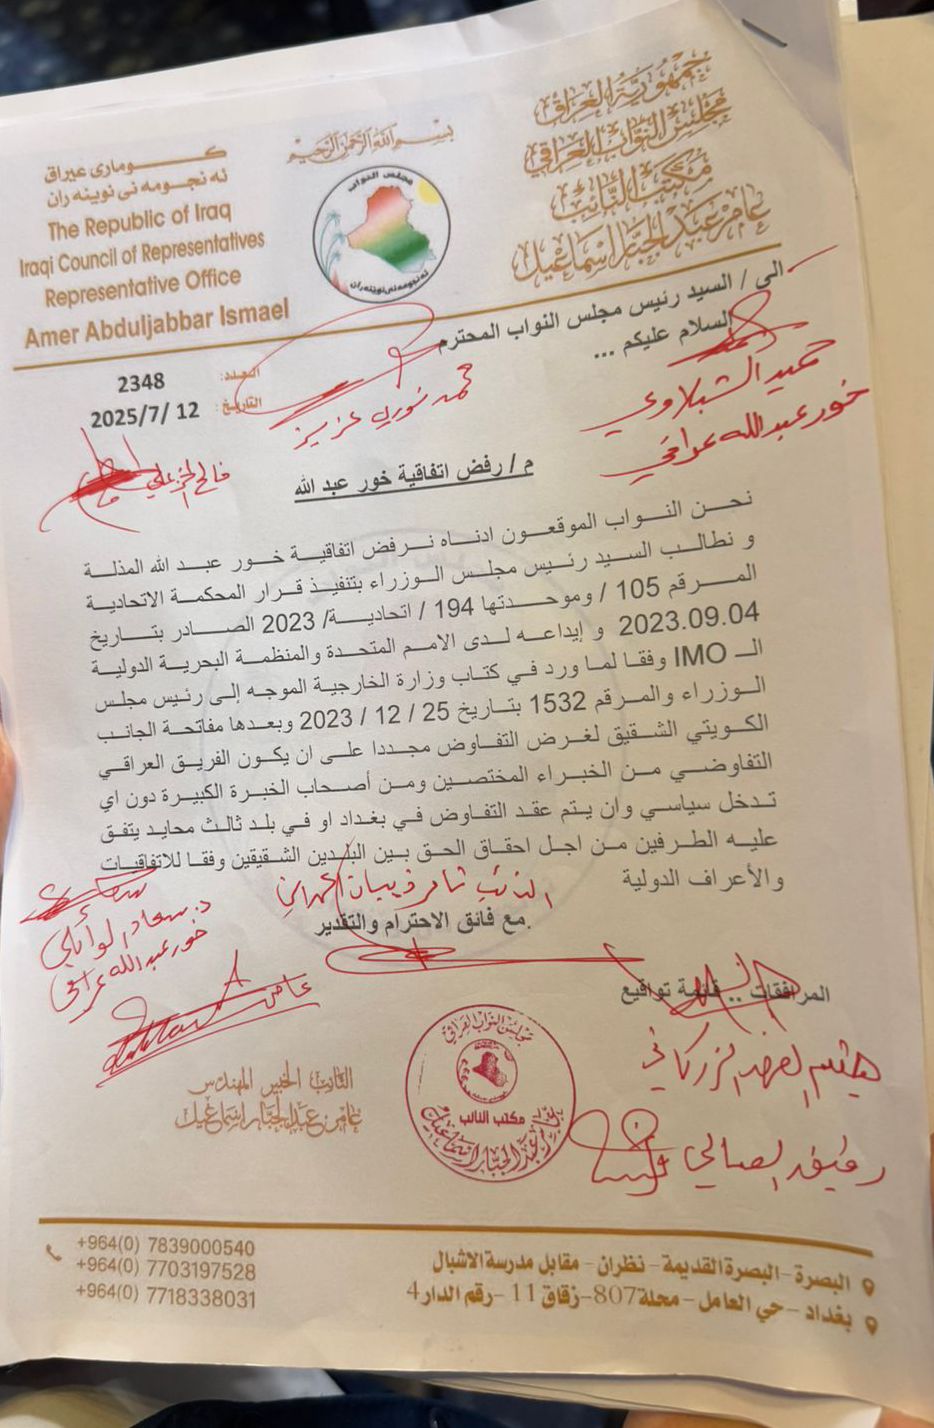 جمهورية العراق
مجلس النواب العراقي
مكتب النائب
عامر عبد الجبار اسماعيل
بسم الله الرحمن الرحيم
مجلس النواب
ئه نجومه نى نوينه ران
كوماری عیراق
ئه نجومه نی نوینه ران
The Republic of Iraq
Iraqi Council of Representatives
Representative Office
Amer Abduljabbar Ismael
العدد: 2348
التاريخ: 12 /2025/7
الى / السيد رئيس مجلس النواب المحترم
السلام عليكم ...
حميد الشبلاوي
خور عبدالله عراقي
محمد نوري عزيز
فالح الخزعلي
م / رفض اتفاقية خور عبد الله
نحن النواب الموقعون ادناه نرفض اتفاقية خور عبد الله المذلة
و نطالب السيد رئيس مجلس الوزراء بتنفيذ قرار المحكمة الاتحادية
المرقم 105 / وموحدتها 194 / اتحادية/ 2023 الصادر بتاريخ
2023.09.04 و إيداعه لدى الامم المتحدة والمنظمة البحرية الدولية
الـ IMO وفقا لما ورد في كتاب وزارة الخارجية الموجه إلى رئيس مجلس
الوزراء والمرقم 1532 بتاريخ 25 / 12 / 2023 وبعدها مفاتحة الجانب
الكويتي الشقيق لغرض التفاوض مجددا على ان يكون الفريق العراقي
التفاوضي من الخبراء المختصين ومن أصحاب الخبرة الكبيرة دون اي
تدخل سياسي وان يتم عقد التفاوض في بغداد او في بلد ثالث محايد يتفق
عليه الطرفين من اجل احقاق الحق بين البلدين الشقيقين وفقا للاتفاقيات
والأعراف الدولية
النائب ثامر ذيبان الحمداني
.مع فائق الاحترام والتقدير
د. سعاد الوائلي
خور عبدالله عراقي
المرافقات .. قائمة تواقيع
هيثم الزركاني
رفيق الصالحي
النائب الخبير المهندس
عامر عبد الجبار اسماعيل
مجلس النواب العراقي
مكتب النائب
عامر عبد الجبار اسماعيل
+964(0) 7839000540
+964(0) 7703197528
+964(0) 7718338031
البصرة - البصرة القديمة - نظران - مقابل مدرسة الاشبال
بغداد - حي العامل - محلة 807 - زقاق 11 - رقم الدار 4